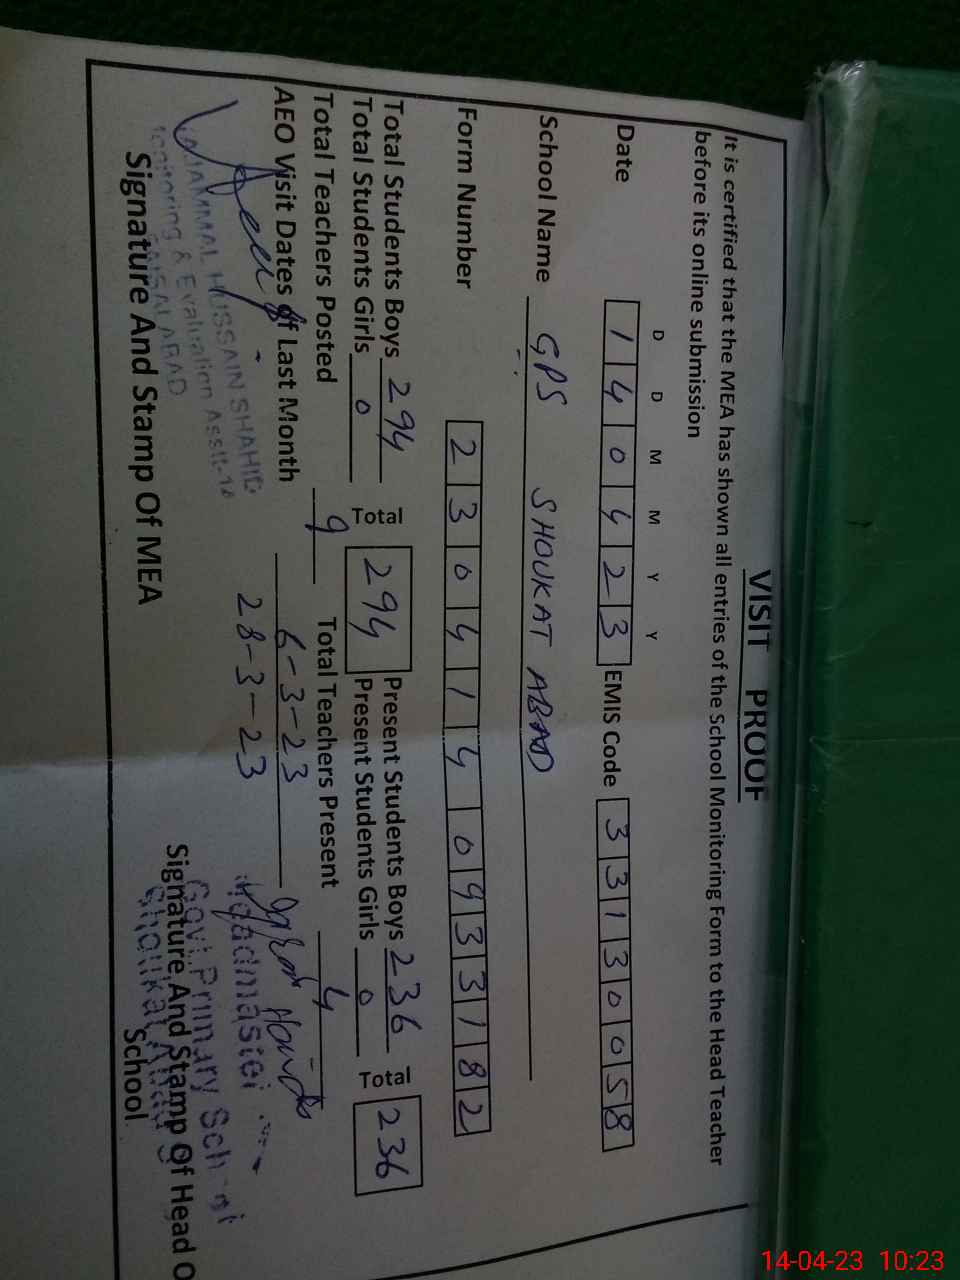 VISIT PROOF
It is certified that the MEA has shown all entries of the School Monitoring Form to the Head Teacher
before its online submission
D D M M Y Y
Date 1 4 0 4 2 3 EMIS Code 3 3 1 3 0 0 5 8
School Name GPS SHOUKAT ABAD
Form Number 2 3 0 4 1 4 0 9 3 3 1 8 2
Total Students Boys 294 Total 294 Present Students Boys 236 Total 236
Total Students Girls 0 Present Students Girls 0
Total Teachers Posted 9 Total Teachers Present 4
AEO Visit Dates of Last Month 6-3-23
28-3-23
HUSSAIN SHAHID
Monitoring & Evaluation Asstt-
FAISALABAD
Signature And Stamp Of MEA
Headmaster
Govt.Primary School
Shoukat Abad
Signature And Stamp Of Head O
School
14-04-23 10:23